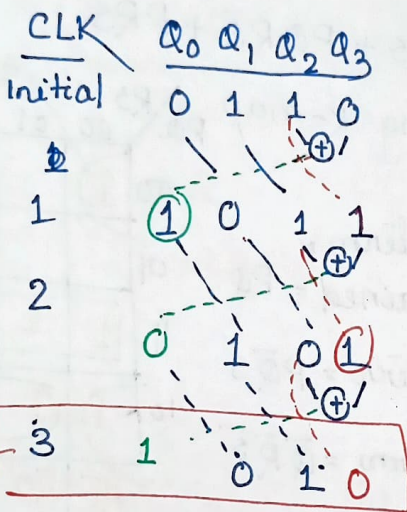 CLK Q₀ Q₁ Q₂ Q₃
Initial 0 1 1 0
+
1 1 0 1 1
+
2 0 1 0 1
+
3 1 0 1 0